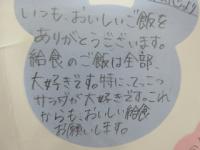 いつも、おいしいご飯を
ありがとうございます。
給食のご飯は全部、
大好きです。特に、てっこつ
サラダが大好きです。これ
からも、おいしい給食
お願いします。